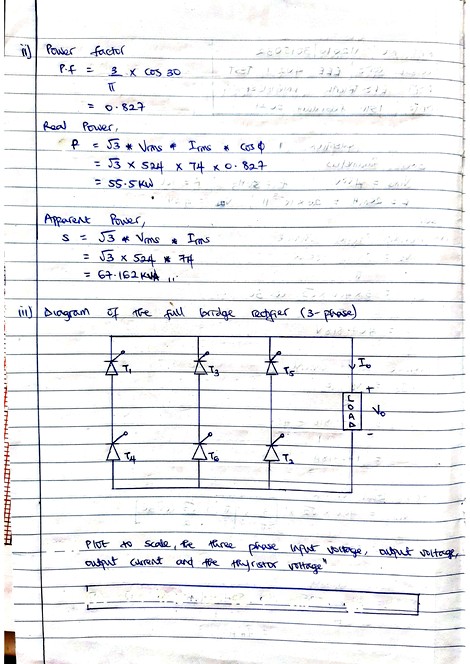 ii) Power factor
P.f = 3/π × cos 30
= 0.827
Real Power,
P = √3 * Vrms * Irms * cosϕ
= √3 × 524 × 74 × 0.827
= 55.5kW
Apparent Power,
S = √3 * Vrms * Irms
= √3 × 524 * 74
= 67.162 kVA
iii) Diagram of the full bridge rectifier (3-phase)
T1 T3 T5 Io
+
LOAD Vo
-
T4 T6 T2
Plot to scale, the three phase input voltage, output voltage,
output current and the thyristor voltage"